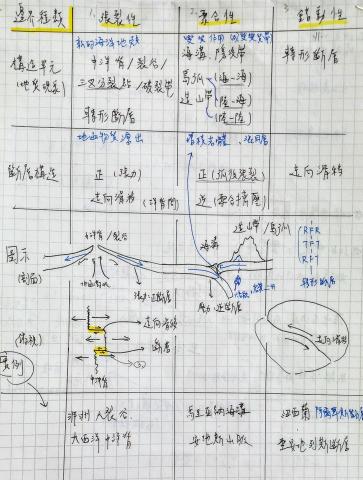 邊界種類
1. 張裂性
2. 聚合性
3. 錯動性
構造單元
(地質現象)
新的海洋地殼
中洋脊/裂谷/
三叉分裂點/破裂帶
轉形斷層
海溝、隱沒帶
島弧(海-海)
造山帶(陸-海)
(陸-陸)
轉形斷層
地函物質湧出
混同層
斷層構造
正(張力)
走向滑移
正(弧後張裂)
逆(聚合擠壓)
走向滑移
圖示
(剖面)
中洋脊/裂谷
海溝
造山帶/島弧
張力-正斷層
壓力-逆斷層
RFR
TFT
RFT
轉形斷層
(俯視)
走向滑移
斷層
中洋脊
走向滑移
實例
東非大裂谷
大西洋中洋脊
馬里亞納海溝
安地斯山脈
紐西蘭阿爾卑斯斷層
聖安地列斯斷層